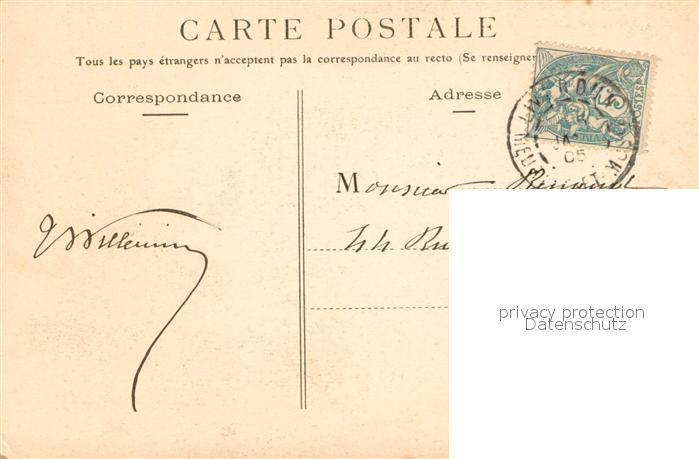 CARTE POSTALE
Tous les pays étrangers n'acceptent pas la correspondance au recto (Se renseigner
Correspondance
Adresse
POSTES
LIVERDUN
JA
05
MEUR ET-MOS
Monsieur
44 Ru
privacy protection
Datenschutz